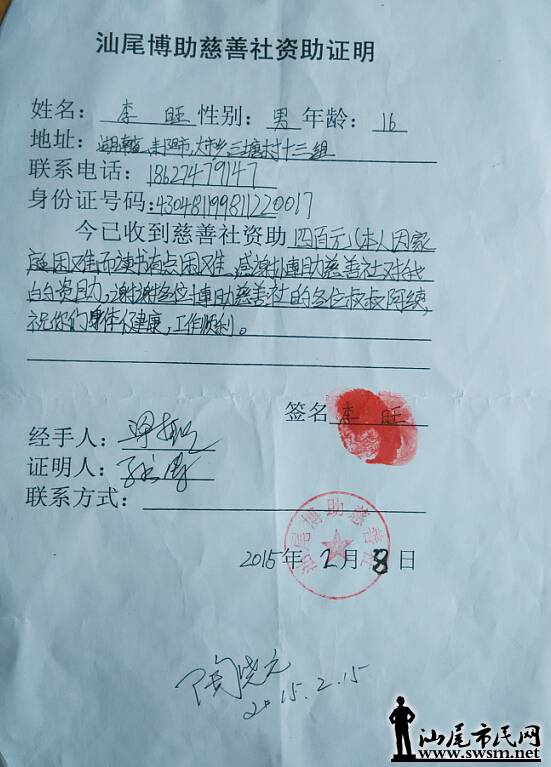 汕尾博助慈善社资助证明
姓名：李旺 性别：男 年龄：16
地址：湖南省，耒阳市，大市乡三塘村十三组
联系电话：18627479147
身份证号码：430481199811220017
今已收到慈善社资助 四百元（本人因家
庭困难而读书有点困难，感谢博助慈善社对我
的资助，谢谢各位博助慈善社的各位叔叔阿姨，
祝你们身体健康，工作顺利。
签名 李旺
经手人：
证明人：
联系方式：
汕尾博助慈善社
2015年2月8日
陶晓元
2015.2.15
汕尾市民网
www.swsm.net